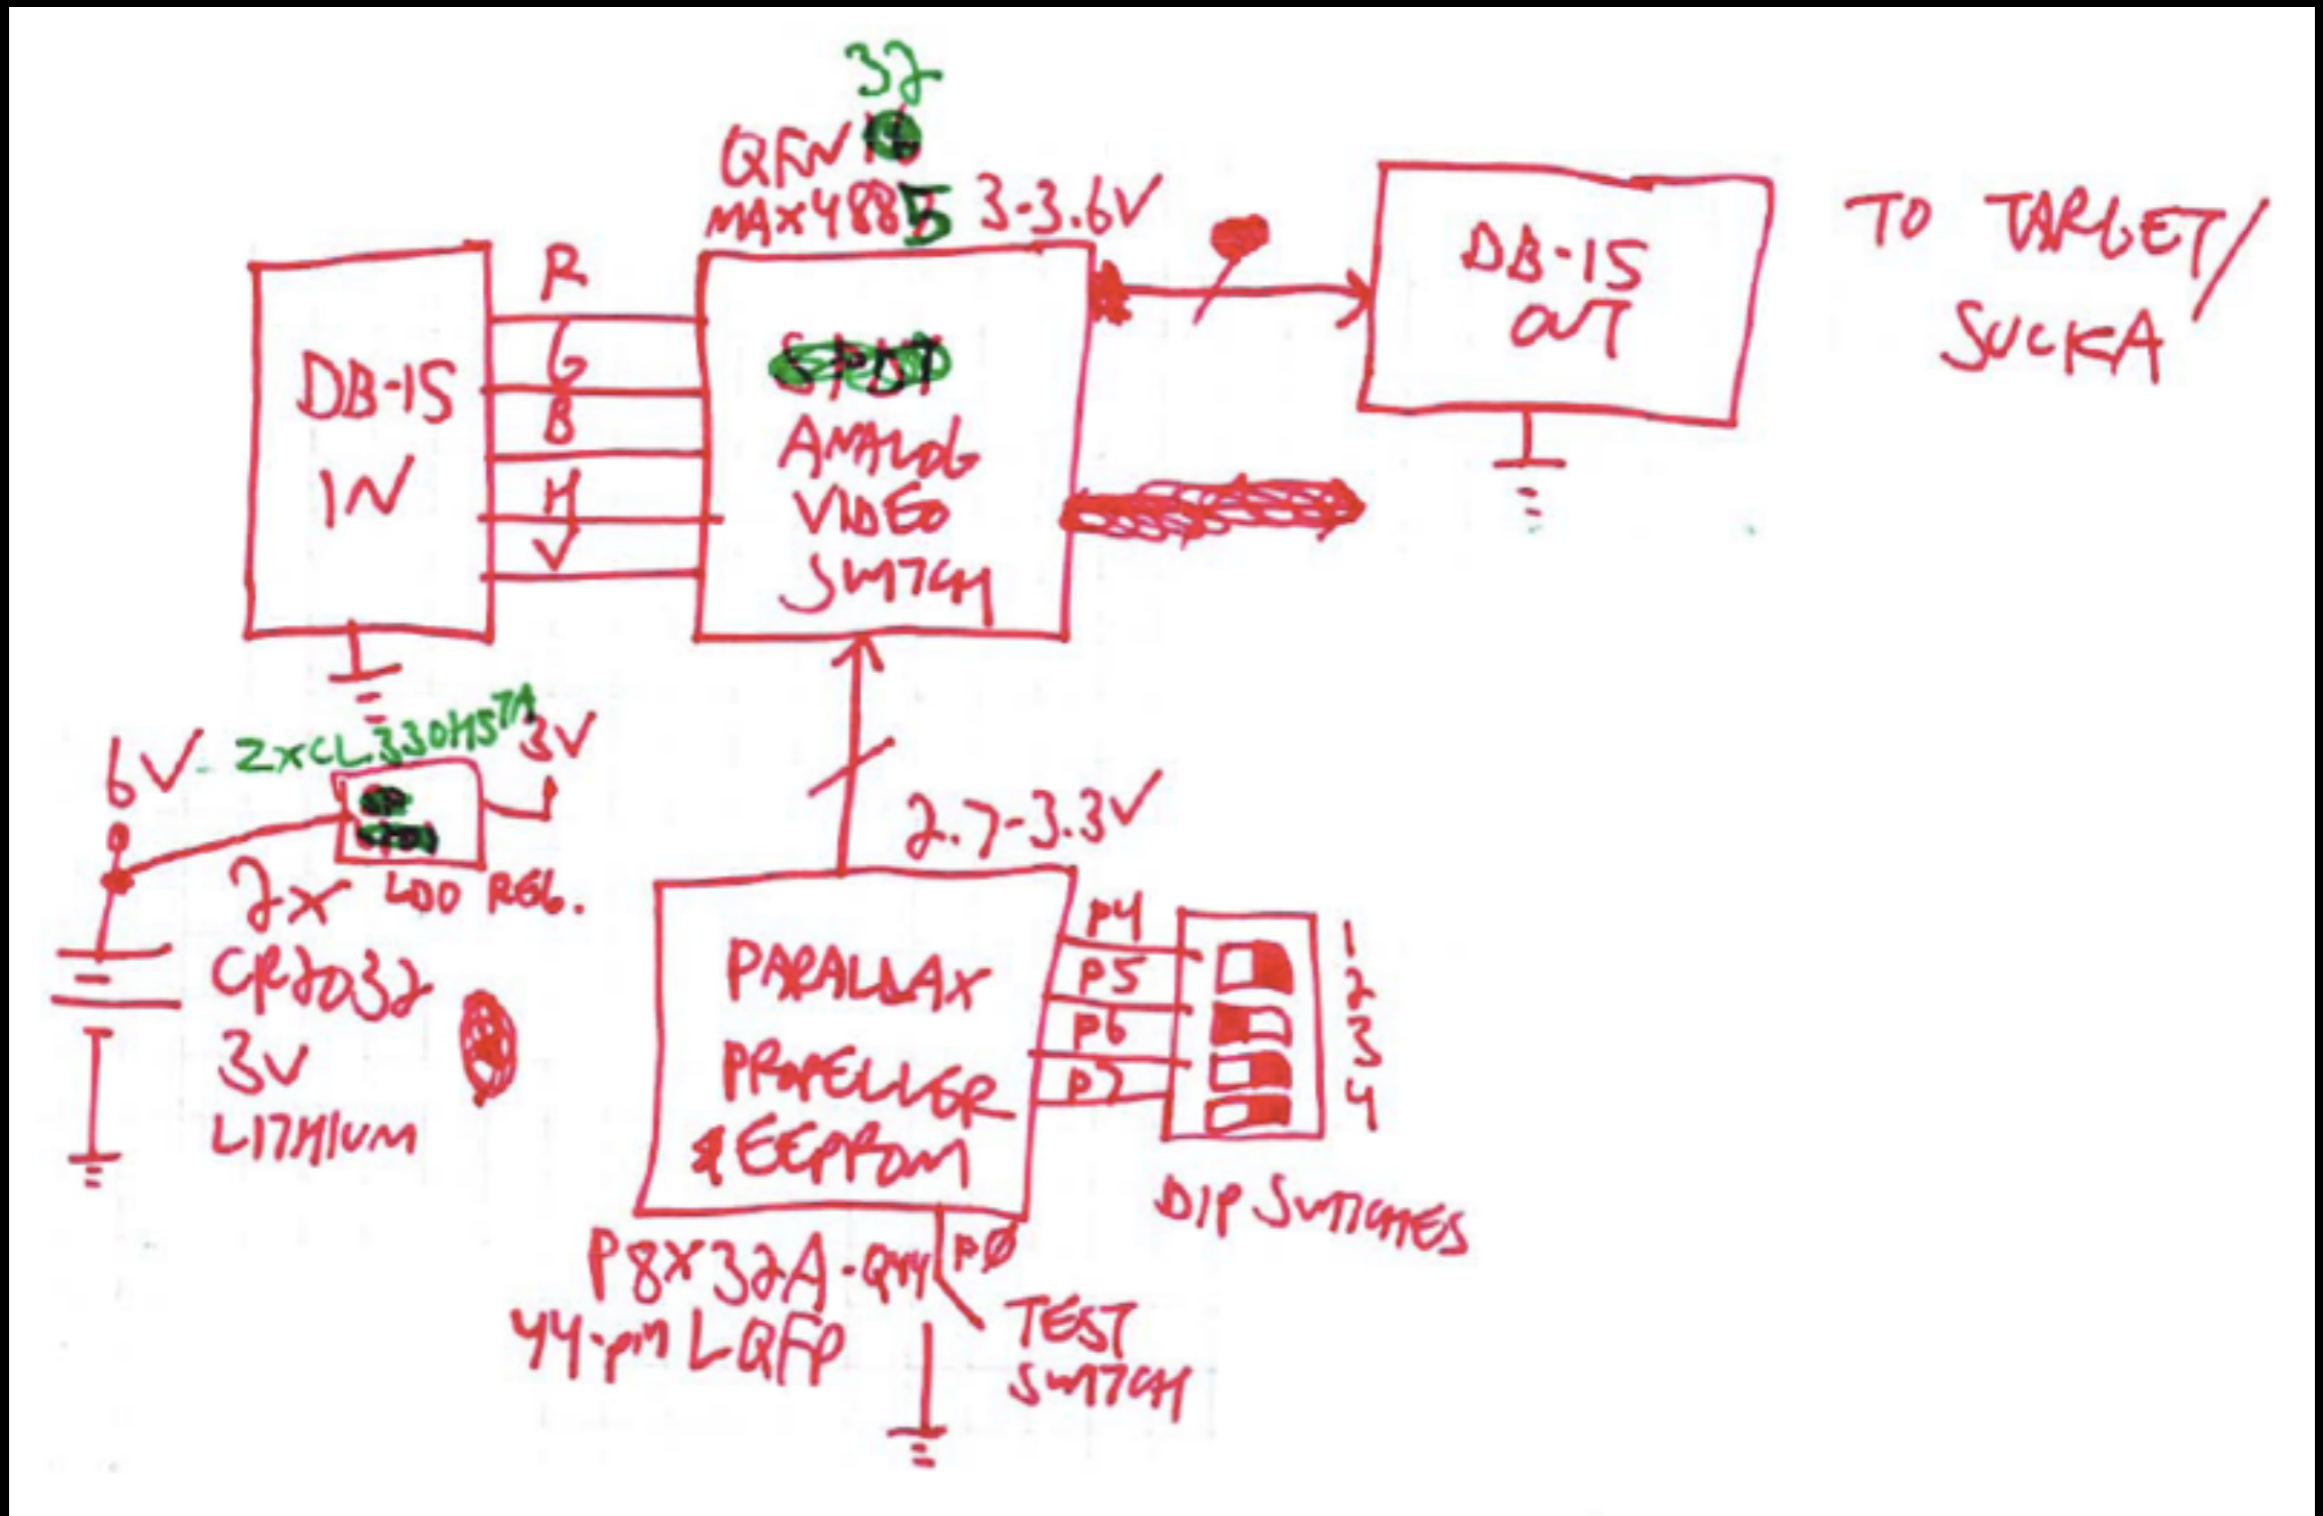 32
QFN
MAX4885 3-3.6V
DB-15
IN
R
G
B
H
V
ANALOG
VIDEO
SWITCH
DB-15
OUT
TO TARGET/
SUCKA
6V
ZXCL330H5TA
3V
LDO REG.
2x
CR2032
3V
LITHIUM
2.7-3.3V
PARALLAX
PROPELLER
& EEPROM
P4
P5
P6
P7
1
2
3
4
DIP SWITCHES
P8X32A-Q44
44-pin LQFP
PØ
TEST
SWITCH